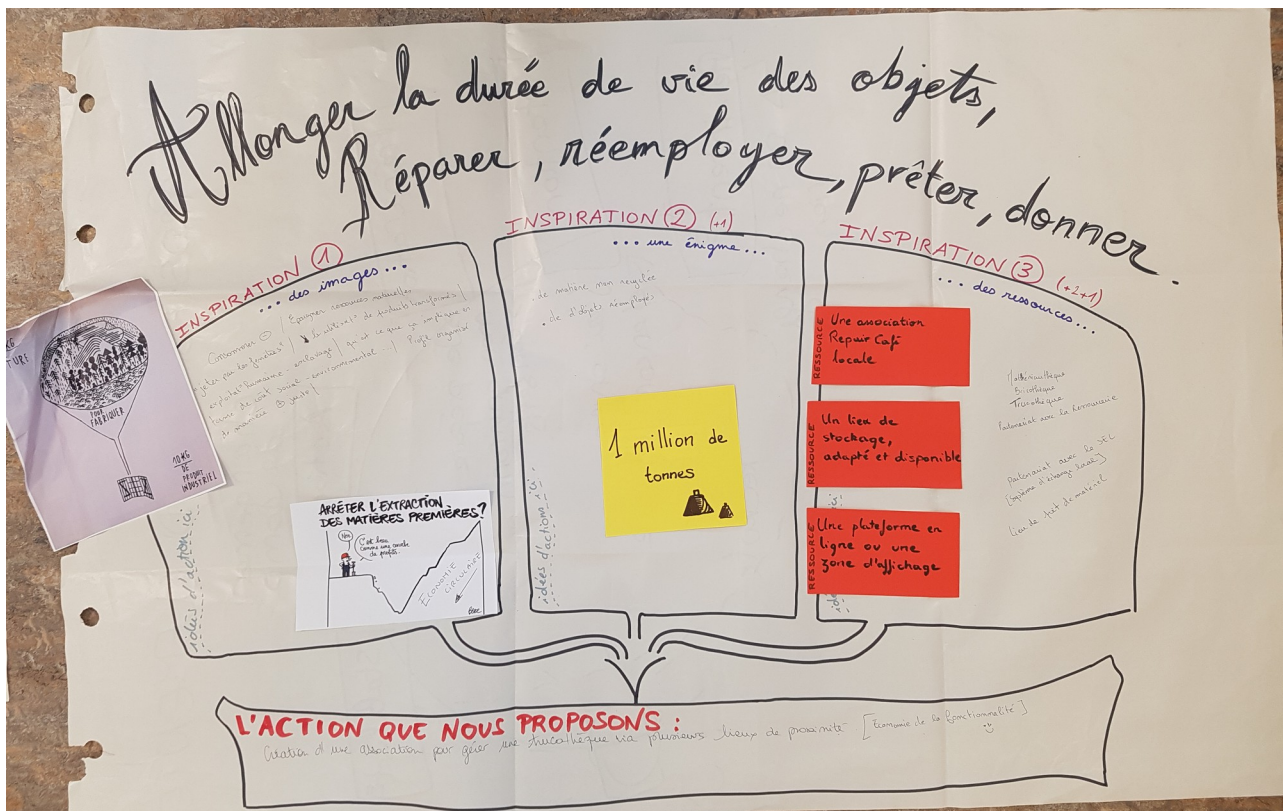 Allonger la durée de vie des objets,
Réparer, réemployer, prêter, donner.
INSPIRATION 1
... des images ...
Consommer
Epargner ressources naturelles
produits transformés
esclavage / qu'est ce que ça implique en
terme de coût social - environnemental
POUR
FABRIQUER
10 KG
DE
PRODUIT
INDUSTRIEL
ARRÊTER L'EXTRACTION
DES MATIÈRES PREMIÈRES?
Non
C'est beau
comme une courbe
de profits.
ÉCONOMIE
CIRCULAIRE
idées d'action ici
INSPIRATION 2 (+1)
... une énigme ...
de matière non recyclée
d'objets réemployés
1 million de
tonnes
idées d'actions ici
INSPIRATION 3 (+2+1)
... des ressources ...
RESSOURCE
Une association
Repair Café
locale
RESSOURCE
Un lieu de
stockage,
adapté et disponible
RESSOURCE
Une plateforme en
ligne ou une
zone d'affichage
Trucothèque
Partenariat avec la Ressourcerie
Partenariat avec le SEL
[Système d'échange local]
Lieu de prêt de matériel
L'ACTION QUE NOUS PROPOSONS :
Création d'une association pour gérer une trucothèque via plusieurs lieux de proximité [Economie de la fonctionnalité]